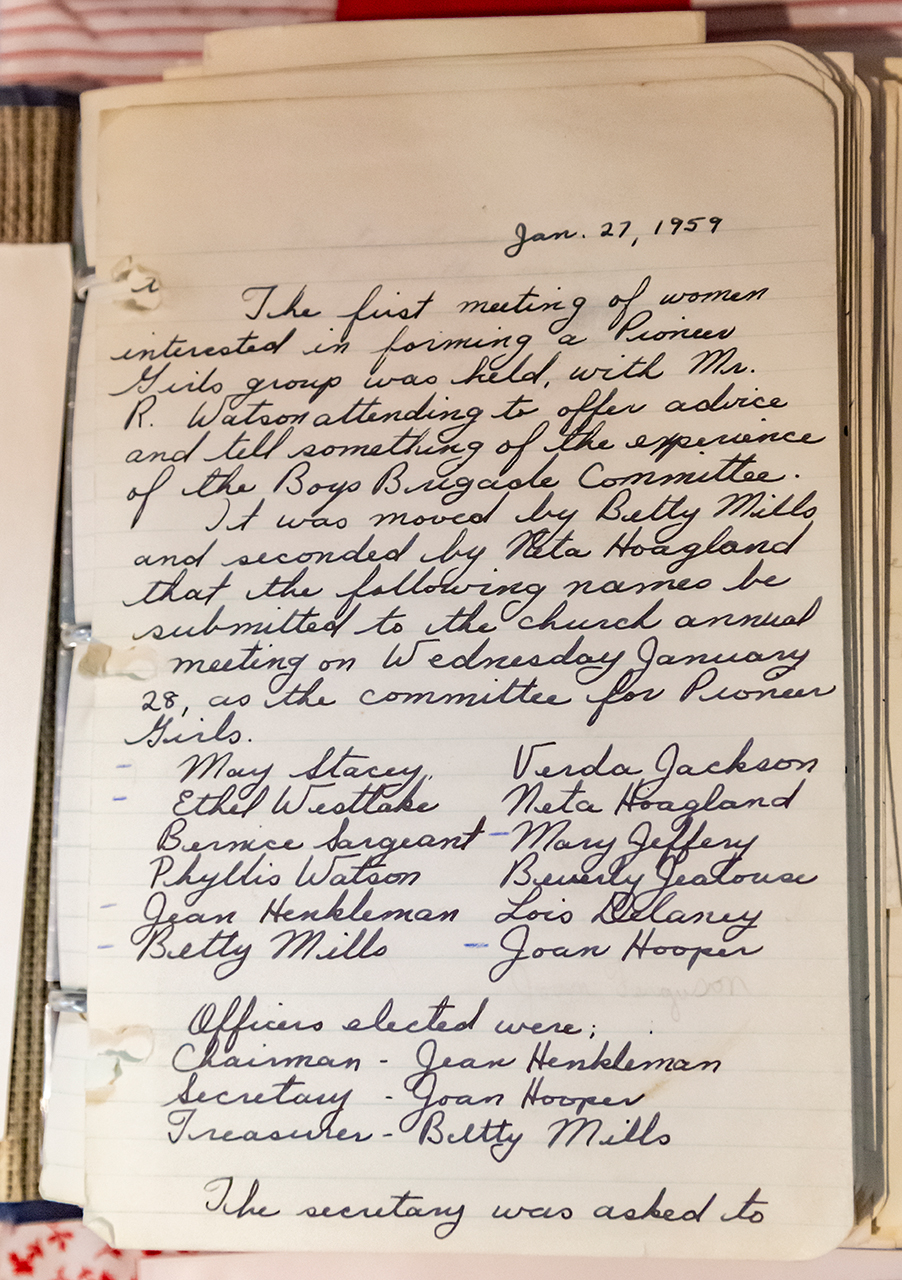 Jan. 27, 1959
The first meeting of women
interested in forming a Pioneer
Girls group was held, with Mr.
R. Watson attending to offer advice
and tell something of the experience
of the Boys Brigade Committee.
It was moved by Betty Mills
and seconded by Neta Hoagland
that the following names be
submitted to the church annual
meeting on Wednesday January
28, as the committee for Pioneer
Girls.
- May Stacey, Verda Jackson
- Ethel Westlake Neta Hoagland
Bernice Sargeant - Mary Jeffery
Phyllis Watson Beverly Jealouse
- Jean Henkleman Lois Delaney
- Betty Mills - Joan Hooper
Officers elected were;
Chairman - Jean Henkleman
Secretary - Joan Hooper
Treasurer - Betty Mills
The secretary was asked to